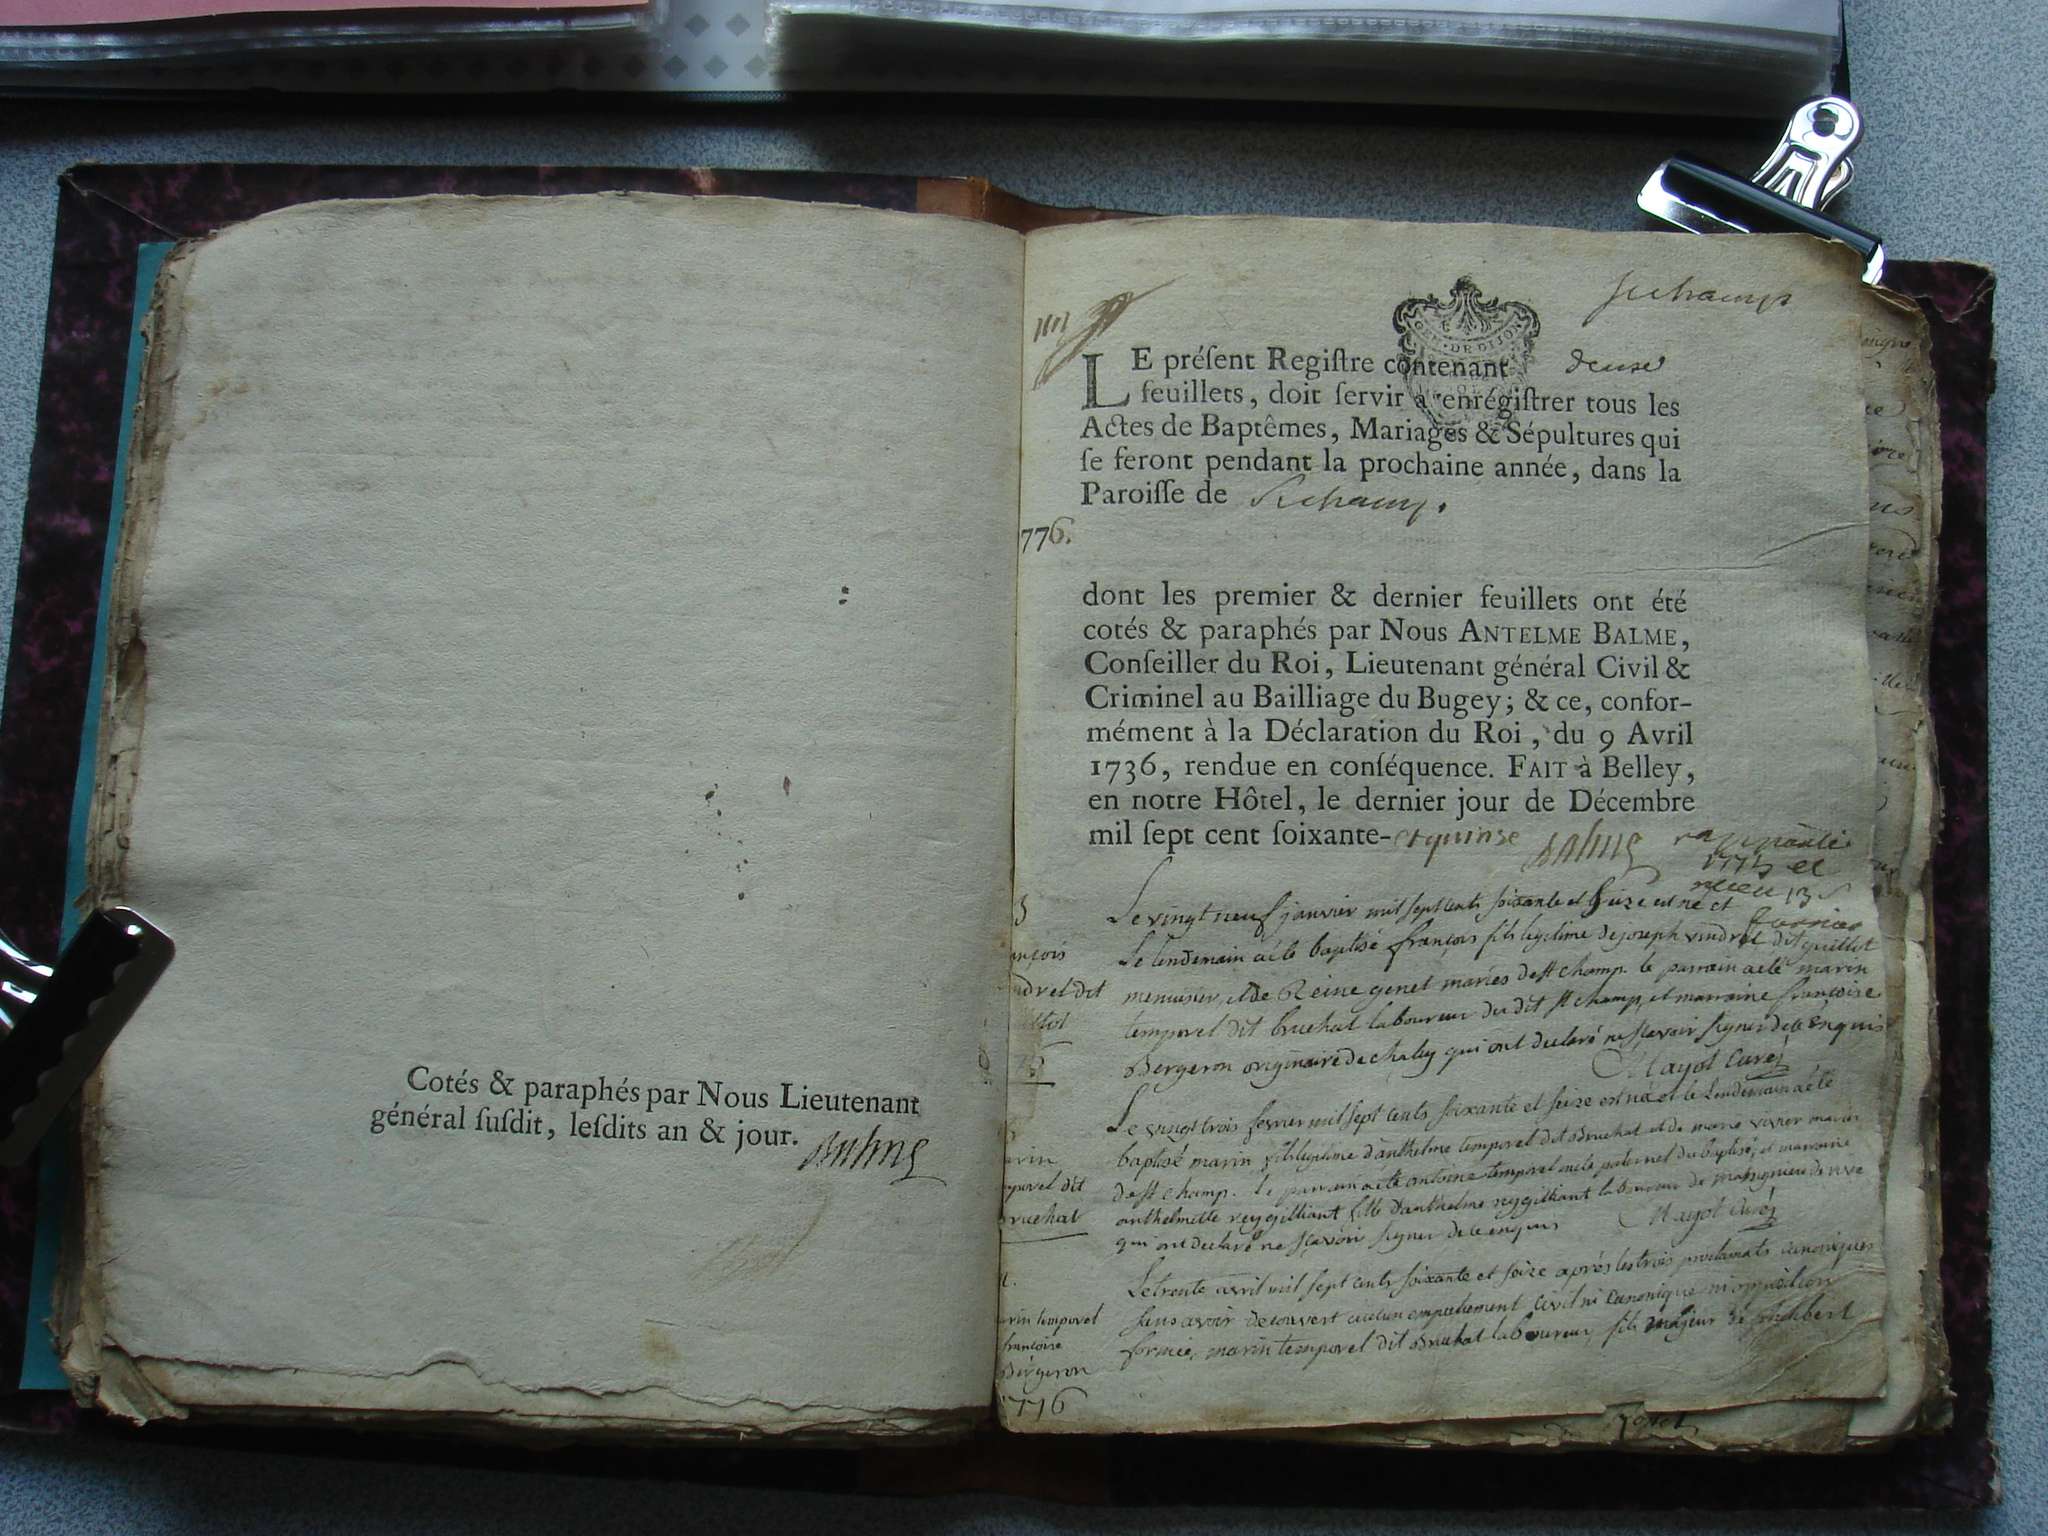 Cotés & paraphés par Nous Lieutenant
général ſuſdit, leſdits an & jour.
Balme
GEN. DE DIJON
LE préſent Regiſtre contenant deuse
feuillets, doit ſervir a enrégiſtrer tous les
Actes de Baptêmes, Mariages & Sépultures qui
ſe feront pendant la prochaine année, dans la
Paroiſſe de
776.
dont les premier & dernier feuillets ont été
cotés & paraphés par Nous ANTELME BALME,
Conſeiller du Roi, Lieutenant général Civil &
Criminel au Bailliage du Bugey; & ce, confor-
mément à la Déclaration du Roi, du 9 Avril
1736, rendue en conſéquence. FAIT à Belley,
en notre Hôtel, le dernier jour de Décembre
mil ſept cent ſoixante-et quinse Balme
Le vingt neuf janvier mil sept cents soixante et seize est né et
le lendemain a été baptisé françois fils legitime de joseph vindret dit guillot
menuisier, et de Reine genet mariés de st champ. le parrain a eté marin
temporel dit bruchat laboureur du dit st champ, et marraine françoise
Bergeron originaire de chaley qui ont declaré ne sçavoir signer de ce enquis
Mayot Curé
Le vingt trois fevrier mil sept cents soixante et seize est né et le lendemain a été
baptisé marin fils legitime d'anthelme temporel dit Bruchat et de marie vivier mariés
de st champ. le parrain a eté antoine temporel oncle paternel du baptisé, et marraine
anthelmette reygilliant fille d'anthelme reygilliant laboureur de massignieu de rive
qui ont declaré ne sçavoir signer de ce enquis Mayot Curé
Le trente avril mil sept cents soixante et seize après les trois proclamats canoniques
sans avoir decouvert aucun empechement civil ni canonique ni opposition
formée, marin temporel dit Bruchat laboureur, fils majeur de
nçois
ndret dit
arin
mporel dit
bruchat
arin temporel
françoise
Bergeron
1776